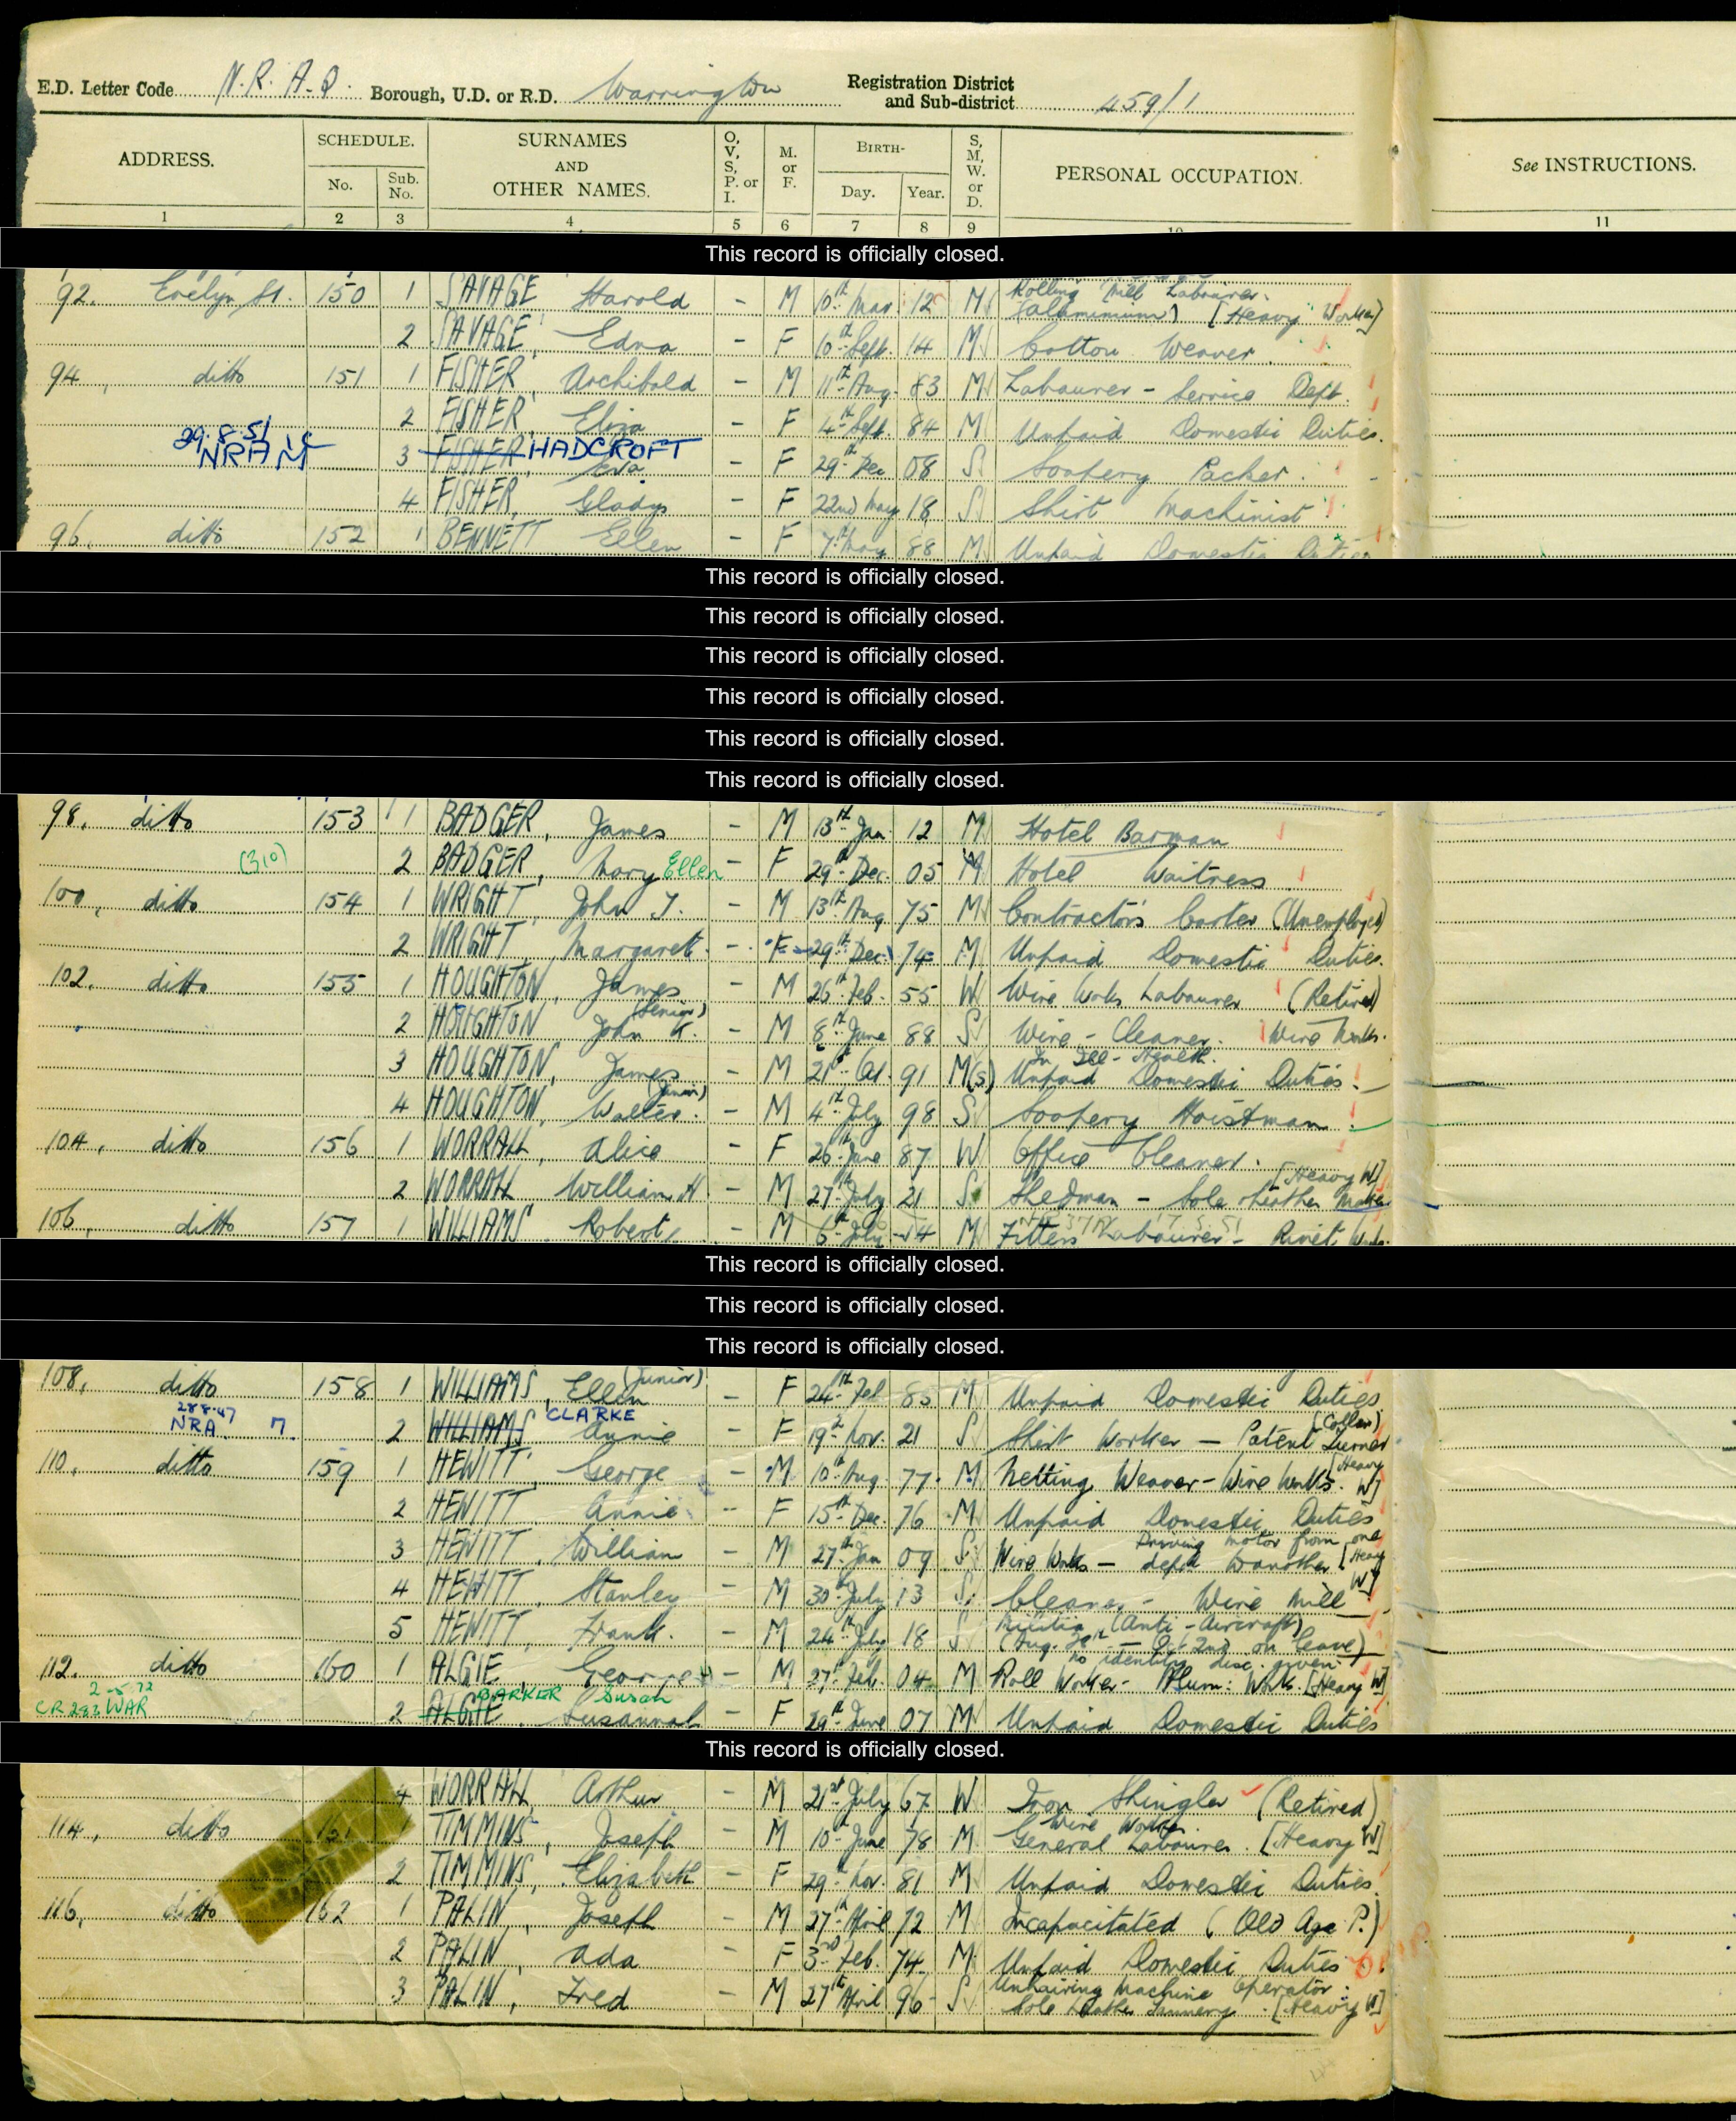 E.D. Letter Code N.R.A.Q. Borough, U.D. or R.D. Warrington Registration District and Sub-district 459/1
ADDRESS. SCHEDULE. No. Sub. No. SURNAMES AND OTHER NAMES. O, V, S, P. or I. M. or F. BIRTH- Day. Year. S, M, W. or D. PERSONAL OCCUPATION. See INSTRUCTIONS.
1 2 3 4 5 6 7 8 9 10 11
This record is officially closed.
92. Evelyn St. 150 1 SAVAGE Harold - M 10th Mar. 12 M Rolling Mill Labourer. (Aluminium) [Heavy Worker]
2 SAVAGE, Edna - F 10th Sept. 14 M Cotton Weaver.
94, ditto 151 1 FISHER, Archibald - M 11th Aug. 83 M Labourer - Service Dept.
2 FISHER, Eliza - F 4th Sept. 84 M Unpaid Domestic Duties.
29.8.51 NRA 3 FISHER HADCROFT Eva - F 29th Dec 08 S Soapery Packer.
4 FISHER, Gladys - F 22nd May 18 S Shirt Machinist
96. ditto 152 1 BENNETT Ellen - F 7th May 88 M Unpaid Domestic Duties
This record is officially closed.
This record is officially closed.
This record is officially closed.
This record is officially closed.
This record is officially closed.
This record is officially closed.
98. ditto 153 1 BADGER, James - M 13th Jan. 12 M Hotel Barman
(310) 2 BADGER, Mary Ellen - F 29th Dec. 05 M Hotel Waitress.
100, ditto 154 1 WRIGHT, John T. - M 13th Aug. 75 M Contractor's Carter (Unemployed)
2 WRIGHT, Margaret. - F 29th Dec. 74 M Unpaid Domestic Duties.
102. ditto 155 1 HOUGHTON, James (Senior) - M 26th Feb. 55 W Wire Works Labourer (Retired)
2 HOUGHTON John - M 8th June 88 S Wire - Cleaner. Wire Works.
3 HOUGHTON, James (Junior) - M 21st Oct. 91 M(S) In Ill-Health. Unpaid Domestic Duties.
4 HOUGHTON, Walter. - M 4th July 98 S Soapery Hoistman
104, ditto 156 1 WORRALL, Alice - F 26th June 87 W Office Cleaner.
2 WORRALL William H - M 27th July 21 S Shedman - Sole Leather Maker [Heavy W]
106, ditto 157 1 WILLIAMS, Robert - M 6th July 14 M Fitters Labourer - Rivet Works.
This record is officially closed.
This record is officially closed.
This record is officially closed.
108, ditto 158 1 WILLIAMS, Ellen (Junior) - F 24th Feb 85 M Unpaid Domestic Duties
28.8.47 NRA. 7. 2 WILLIAMS CLARKE Annie - F 19th Nov. 21 S Shirt Worker - Patent Turner (Collar)
110, ditto 159 1 HEWITT, George - M 10th Aug. 77. M Netting Weaver - Wire Works. [Heavy W]
2 HEWITT Annie - F 15th Dec. 76 M Unpaid Domestic Duties
3 HEWITT, William - M 27th Jan 09 S Wire Works - Driving motor from one depot to another [Heavy W]
4 HEWITT, Stanley - M 30th July 13 S Cleaner - Wire Mill
5 HEWITT, Frank. - M 24th July 18 S Militia (Anti-Aircraft) (Aug. 20th - Oct 2nd on leave) no identity disc given
112. ditto 160 1 ALGIE, George - M 27th Feb. 04 M Roll Worker - Alum: Works. [Heavy W]
2-5-72 CR 283 WAR 2 ALGIE BARKER Susan Susannah - F 29th June 07 M Unpaid Domestic Duties
This record is officially closed.
4 WORRALL Arthur - M 21st July 67 W Iron Shingler (Retired)
114, ditto 161 TIMMINS, Joseph - M 10th June 78 M Wire Works General Labourer. [Heavy W]
2 TIMMINS, Elizabeth - F 29th Nov. 81 M Unpaid Domestic Duties.
116, ditto 162 1 PALIN, Joseph - M 27th April 72 M Incapacitated (Old Age P.)
2 PALIN, Ada - F 3rd Feb. 74. M Unpaid Domestic Duties.
3 PALIN, Fred - M 27th April 96 S Unhairing Machine Operator. Sole Leather Tannery. [Heavy W]